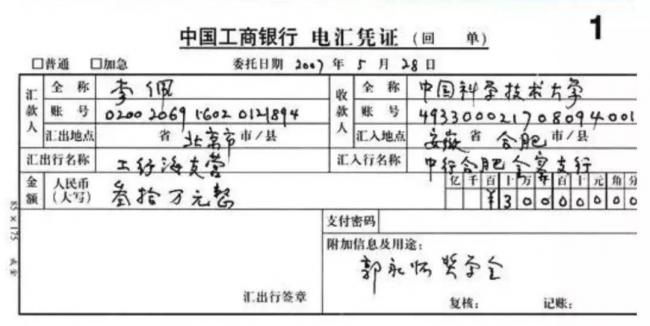 中国工商银行 电汇凭证（回 单） 1
□普通 □加急 委托日期 2007 年 5 月 28 日
汇款人 全称 李佩 收款人 全称 中国科学技术大学
账号 0200 2069 1602 0121894 账号 493300021708094001
汇出地点 省 北京市 市/县 汇入地点 安徽 省 合肥 市/县
汇出行名称 工行海支营 汇入行名称 中行合肥金寨支行
金额 人民币（大写） 叁拾万元整 亿千百十万千百十元角分
¥30000000
支付密码
附加信息及用途：
郭永怀奖学金
汇出行签章 复核： 记账：